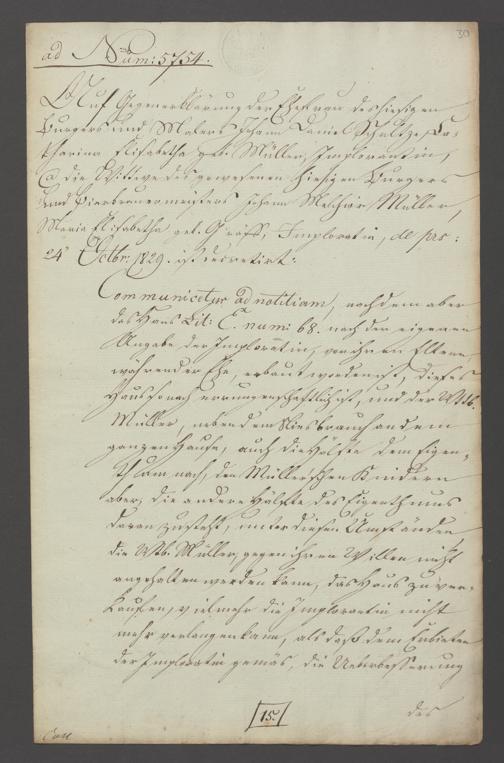 30
ad Num: 5754.
Auf Gegenerklärung der Ehefrau des hiesigen
Burgers und Malers Johann Daniel Schultze, Ca-
tharina Elisabetha geb. Müller, Implorantin,
Ca die Wittwe des gewesenen hiesigen Burgers
und Bierbrauermeisters Johann Melchior Müller,
Maria Elisabetha geb. Gräff, Imploratin, de prs:
24 Octbr: 1829. ist decretirt:
Communicetur ad notitiam, nachdem aber
das Haus Lit: E. num: 68. nach der eigenen
Angabe der Implorantin, von ihren Eltern
während der Ehe, erbaut worden ist, dieses
Haus sonach errungenschaftlich ist, und der Wtb.
Müller, neben dem Niesbrauch an dem
ganzen Hause, auch die Hälfte dem Eigen-
thum nach, den Müllerschen Kindern
aber, die andere Hälfte des Eigenthums
daran zusteht, unter diesen Umständen
die Wtb. Müller, gegen ihren Willen nicht
angehalten werden kann, das Haus zu ver-
kaufen, vielmehr die Implorantin nicht
mehr verlangen kann, als daß dem Erbieten
der Imploratin gemäs, die Ueberbesserung
des
15.